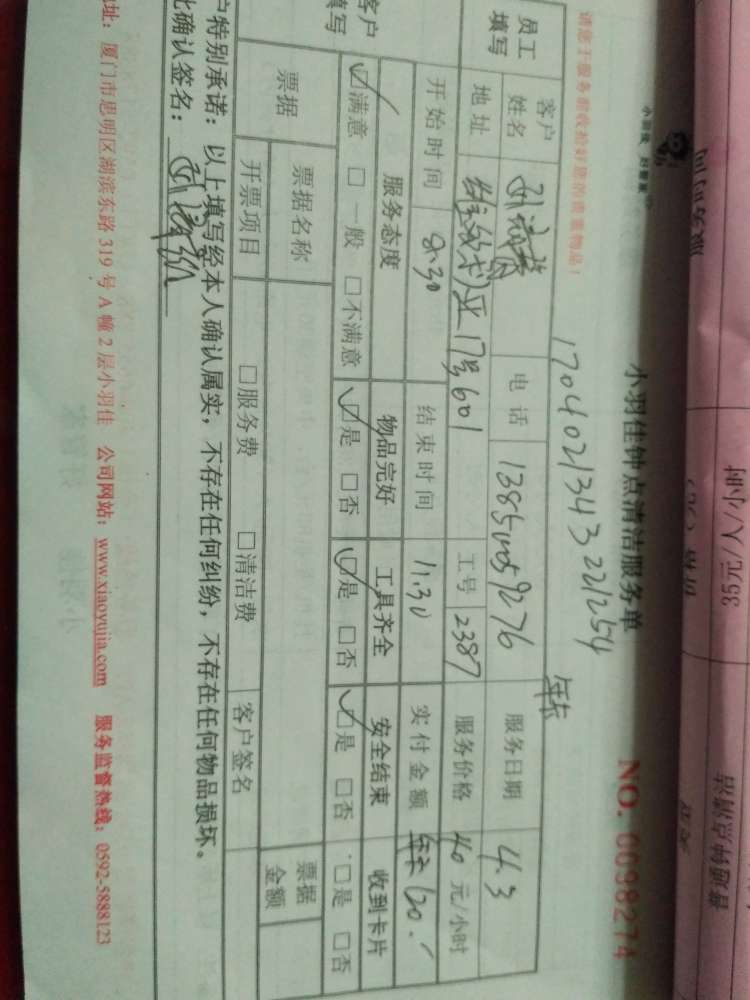 小羽佳钟点清洁服务单
NO. 0098274
小羽佳 好管家
17040213433221254 年卡
请您于服务前收拾好您的贵重物品!
员工填写
客户姓名 电话 服务日期 4.3
地址 17号601 工号 2387 服务价格 40 元/小时
开始时间 8.30 结束时间 11.30 实付金额 年卡120.
客户填写
服务态度 物品完好 工具齐全 安全结束 收到卡片
☑满意 □一般 □不满意 ☑是 □否 ☑是 □否 ☑是 □否 □是 □否
票据 票据名称 票据金额
开票项目 □服务费 □清洁费 客户签名
户特别承诺：以上填写经本人确认属实，不存在任何纠纷，不存在任何物品损坏。
此确认签名：
地址：厦门市思明区湖滨东路 319 号 A 幢 2 层小羽佳 公司网站：www.xiaoyujia.com 服务监督热线：0592-5888123
35元/人/小时